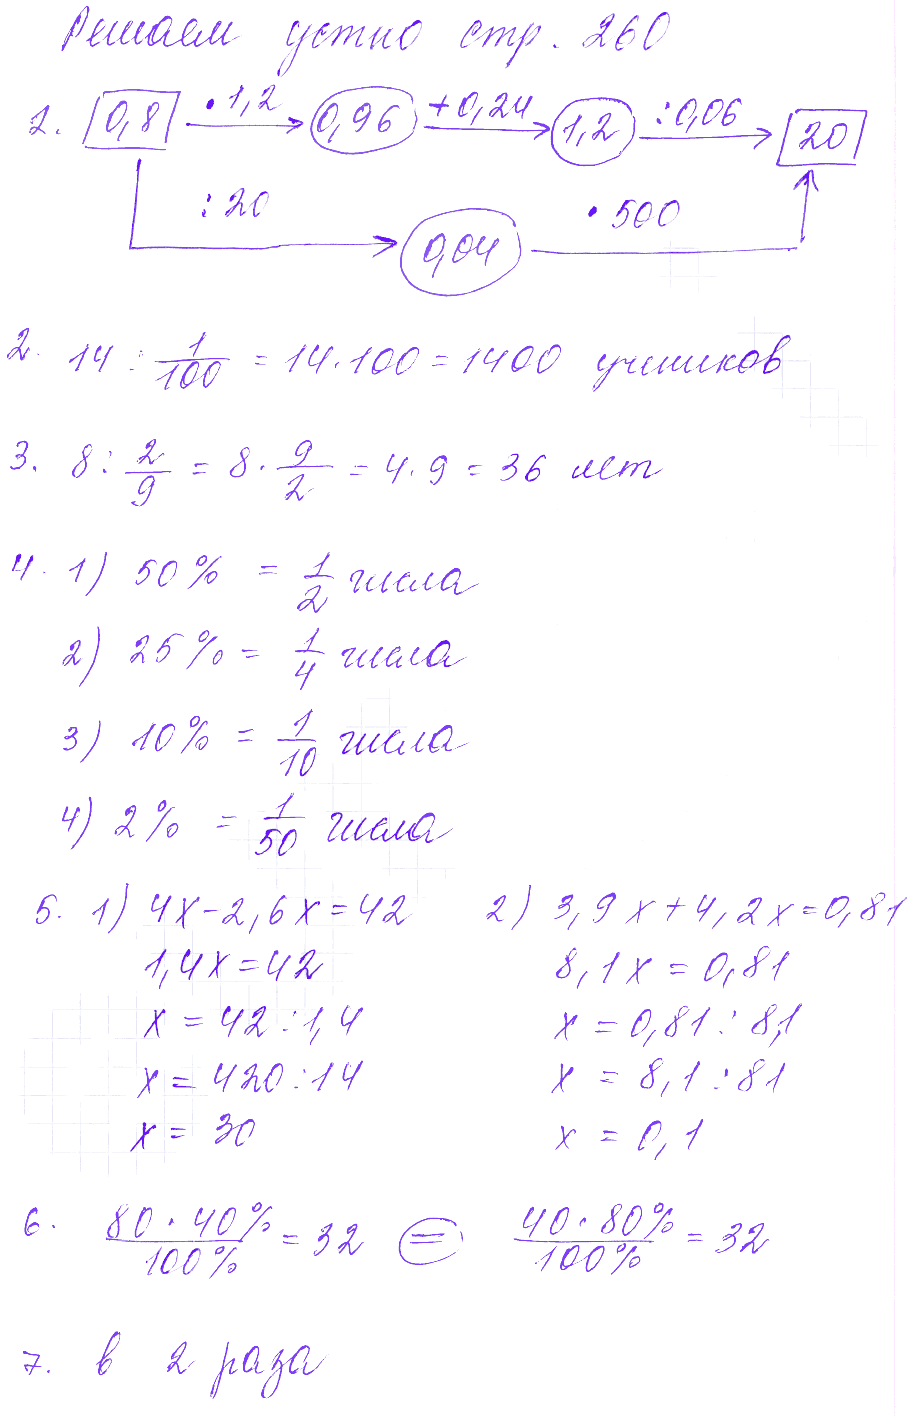 Решаем устно стр. 260
1. 0,8 · 1,2 0,96 + 0,24 1,2 : 0,06 20
: 20 0,04 · 500
2. 14 : 1/100 = 14 · 100 = 1400 учеников
3. 8 : 2/9 = 8 · 9/2 = 4 · 9 = 36 лет
4. 1) 50% = 1/2 числа
2) 25% = 1/4 числа
3) 10% = 1/10 числа
4) 2% = 1/50 числа
5. 1) 4x - 2,6x = 42 2) 3,9x + 4,2x = 0,81
1,4x = 42 8,1x = 0,81
x = 42 : 1,4 x = 0,81 : 8,1
x = 420 : 14 x = 8,1 : 81
x = 30 x = 0,1
6. 80 · 40% / 100% = 32 = 40 · 80% / 100% = 32
7. в 2 раза